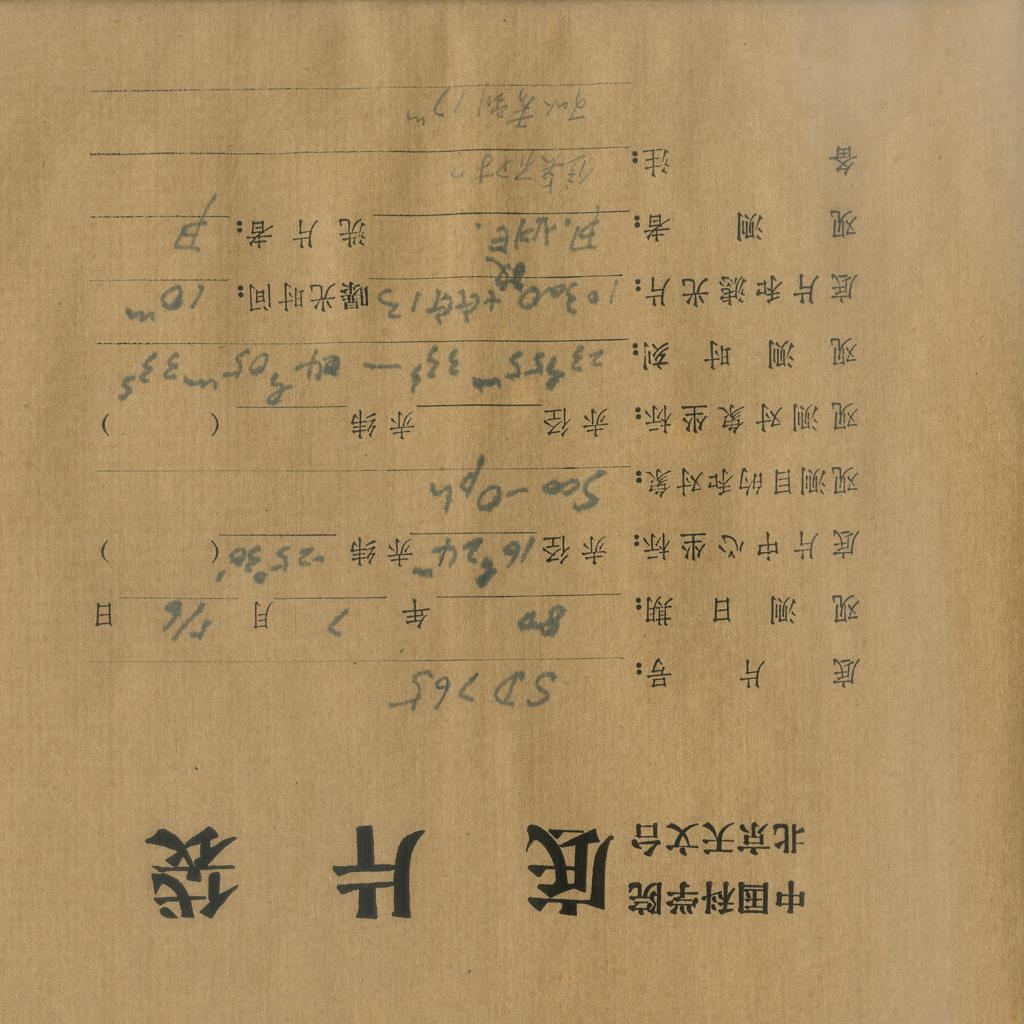 中国科学院
北京天文台
底片袋
底片号: SD765
观测日期: 80 年 7 月 5/6 日
底片中心坐标: 赤径 16h24m 赤纬 -25°30' ( )
观测目的和对象: Sco-Oph
观测对象坐标: 赤径 赤纬 ( )
观测时刻: 23h55m33s — 04h05m33s
底片和滤光片: 103aO 曝光时间: 10m
观测者: 洗片者:
备注: 位置不对?
可以看到17m